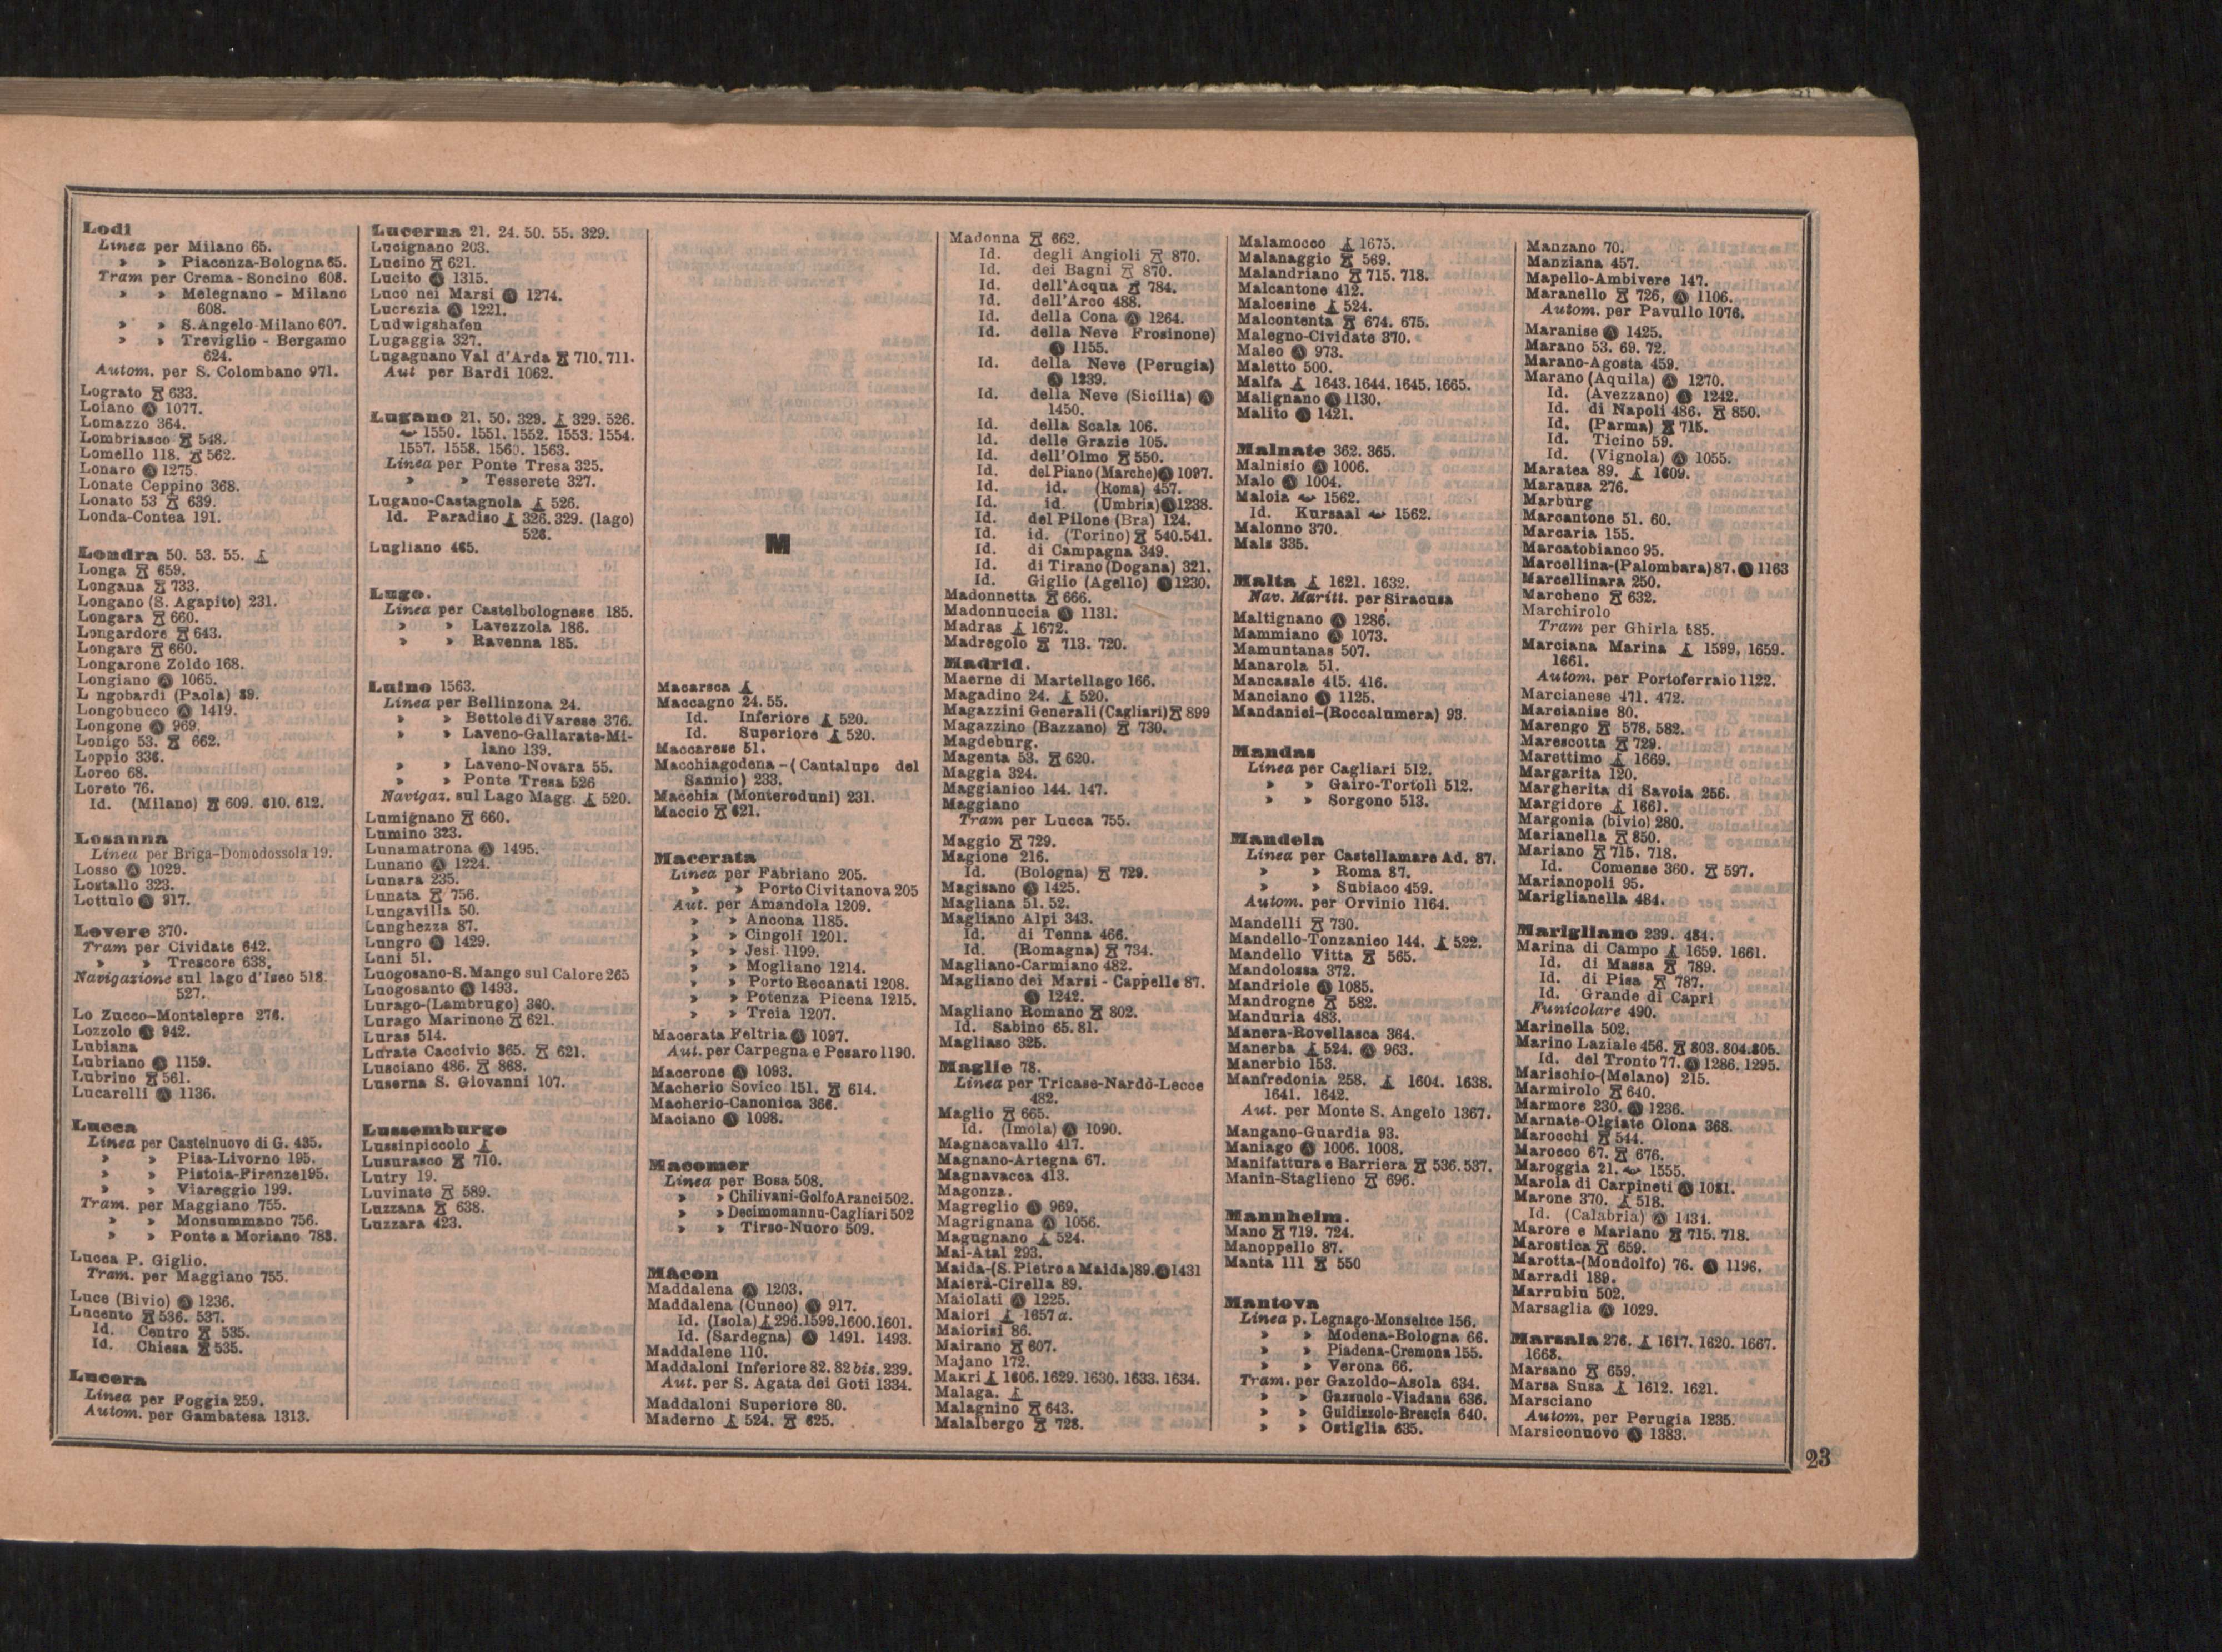 Lodi
Linea per Milano 65.
» » Piacenza-Bologna 65.
Tram per Crema - Soncino 608.
» » Melegnano - Milano
608.
» » S. Angelo-Milano 607.
» » Treviglio - Bergamo
624.
Autom. per S. Colombano 971.
Lograto 633.
Loiano 1077.
Lomazzo 364.
Lombriasco 548.
Lomello 118. 562.
Lonaro 1275.
Lonate Ceppino 368.
Lonato 53 639.
Londa-Contea 191.
Londra 50. 53. 55.
Longa 659.
Longana 733.
Longano (S. Agapito) 231.
Longara 660.
Longardore 643.
Longare 660.
Longarone Zoldo 168.
Longiano 1065.
L ngobardi (Paola) 89.
Longobucco 1419.
Longone 969.
Lonigo 53. 662.
Loppio 336.
Loreo 68.
Loreto 76.
Id. (Milano) 609. 610. 612.
Losanna
Linea per Briga-Domodossola 19.
Losso 1029.
Lostallo 323.
Lottulo 917.
Lovere 370.
Tram per Cividate 642.
» » Trescore 638.
Navigazione sul lago d'Iseo 518.
527.
Lo Zucco-Montelepre 276.
Lozzolo 942.
Lubiana
Lubriano 1159.
Lubrino 561.
Lucarelli 1136.
Lucca
Linea per Castelnuovo di G. 435.
» » Pisa-Livorno 195.
» » Pistoia-Firenze 195.
» » Viareggio 199.
Tram. per Maggiano 755.
» » Monsummano 756.
» » Ponte a Moriano 783.
Lucca P. Giglio.
Tram. per Maggiano 755.
Luce (Bivio) 1236.
Lucento 536. 537.
Id. Centro 535.
Id. Chiesa 535.
Lucera
Linea per Foggia 259.
Autom. per Gambatesa 1313.
Lucerna 21. 24. 50. 55. 329.
Lucignano 203.
Lucino 621.
Lucito 1315.
Luco nei Marsi 1274.
Lucrezia 1221.
Ludwigshafen
Lugaggia 327.
Lugagnano Val d'Arda 710. 711.
Aut per Bardi 1062.
Lugano 21. 50. 329. 329. 526.
1550. 1551. 1552. 1553. 1554.
1557. 1558. 1560. 1563.
Linea per Ponte Tresa 325.
» » Tesserete 327.
Lugano-Castagnola 526.
Id. Paradiso 326. 329. (lago)
526.
Lugliano 465.
Lugo.
Linea per Castelbolognese 185.
» » Lavezzola 186.
» » Ravenna 185.
Luino 1563.
Linea per Bellinzona 24.
» » Bettole di Varese 376.
» » Laveno-Gallarate-Mi-
lano 139.
» » Laveno-Novara 55.
» » Ponte Tresa 526
Navigaz. sul Lago Magg. 520.
Lumignano 660.
Lumino 323.
Lunamatrona 1495.
Lunano 1224.
Lunara 235.
Lunata 756.
Lungavilla 50.
Lunghezza 87.
Lungro 1429.
Luni 51.
Luogosano-S. Mango sul Calore 265
Luogosanto 1493.
Lurago-(Lambrugo) 360.
Lurago Marinone 621.
Luras 514.
Lurate Caccivio 365. 621.
Lusciano 486. 868.
Luserna S. Giovanni 107.
Lussemburgo
Lussinpiccolo
Lusurasco 710.
Lutry 19.
Luvinate 589.
Luzzana 638.
Luzzara 423.
M
Macarsca
Maccagno 24. 55.
Id. Inferiore 520.
Id. Superiore 520.
Maccarese 51.
Macchiagodena - (Cantalupo del
Sannio) 233.
Macchia (Monteroduni) 231.
Maccio 621.
Macerata
Linea per Fabriano 205.
» » Porto Civitanova 205
Aut. per Amandola 1209.
» » Ancona 1185.
» » Cingoli 1201.
» » Jesi 1199.
» » Mogliano 1214.
» » Porto Recanati 1208.
» » Potenza Picena 1215.
» » Treia 1207.
Macerata Feltria 1097.
Aut. per Carpegna e Pesaro 1190.
Macerone 1093.
Macherio Sovico 151. 614.
Macherio-Canonica 366.
Maciano 1098.
Macomer
Linea per Bosa 508.
» » Chilivani-Golfo Aranci 502.
» » Decimomannu-Cagliari 502
» » Tirso-Nuoro 509.
Mâcon
Maddalena 1203.
Maddalena (Cuneo) 917.
Id. (Isola) 296. 1599. 1600. 1601.
Id. (Sardegna) 1491. 1493.
Maddalene 110.
Maddaloni Inferiore 82. 82 bis. 239.
Aut. per S. Agata dei Goti 1334.
Maddaloni Superiore 80.
Maderno 524. 625.
Madonna 662.
Id. degli Angioli 870.
Id. dei Bagni 870.
Id. dell'Acqua 784.
Id. dell'Arco 488.
Id. della Cona 1264.
Id. della Neve Frosinone)
1155.
Id. della Neve (Perugia)
1239.
Id. della Neve (Sicilia)
1450.
Id. della Scala 106.
Id. delle Grazie 105.
Id. dell'Olmo 550.
Id. del Piano (Marche) 1097.
Id. id. (Roma) 457.
Id. id. (Umbria) 1238.
Id. del Pilone (Bra) 124.
Id. id. (Torino) 540. 541.
Id. di Campagna 349.
Id. di Tirano (Dogana) 321.
Id. Giglio (Agello) 1230.
Madonnetta 666.
Madonnuccia 1131.
Madras 1672.
Madregolo 713. 720.
Madrid.
Maerne di Martellago 166.
Magadino 24. 520.
Magazzini Generali (Cagliari) 899
Magazzino (Bazzano) 730.
Magdeburg.
Magenta 53. 620.
Maggia 324.
Maggianico 144. 147.
Maggiano
Tram per Lucca 755.
Maggio 729.
Magione 216.
Id. (Bologna) 729.
Magisano 1425.
Magliana 51. 52.
Magliano Alpi 343.
Id. di Tenna 466.
Id. (Romagna) 734.
Magliano-Carmiano 482.
Magliano dei Marsi - Cappelle 87.
1242.
Magliano Romano 802.
Id. Sabino 65. 81.
Magliaso 325.
Maglie 78.
Linea per Tricase-Nardò-Lecce
482.
Maglio 665.
Id. (Imola) 1090.
Magnacavallo 417.
Magnano-Artegna 67.
Magnavacca 413.
Magonza.
Magreglio 969.
Magrignana 1056.
Magugnano 524.
Mai-Atal 293.
Maida-(S. Pietro a Maida) 89. 1431
Maierà-Cirella 89.
Maiolati 1225.
Maiori 1657 a.
Maiorisi 86.
Mairano 607.
Majano 172.
Makri 1606. 1629. 1630. 1633. 1634.
Malaga.
Malagnino 643.
Malalbergo 728.
Malamocco 1675.
Malanaggio 569.
Malandriano 715. 718.
Malcantone 412.
Malcesine 524.
Malcontenta 674. 675.
Malegno-Cividate 370.
Maleo 973.
Maletto 500.
Malfa 1643. 1644. 1645. 1665.
Malignano 1130.
Malito 1421.
Malnate 362. 365.
Malnisio 1006.
Malo 1004.
Maloia 1562.
Id. Kursaal 1562.
Malonno 370.
Mals 335.
Malta 1621. 1632.
Nav. Maritt. per Siracusa
Maltignano 1286.
Mammiano 1073.
Mamuntanas 507.
Manarola 51.
Mancasale 415. 416.
Manciano 1125.
Mandanici-(Roccalumera) 93.
Mandas
Linea per Cagliari 512.
» » Gairo-Tortolì 512.
» » Sorgono 513.
Mandela
Linea per Castellamare Ad. 87.
» » Roma 87.
» » Subiaco 459.
Autom. per Orvinio 1164.
Mandelli 730.
Mandello-Tonzanico 144. 522.
Mandello Vitta 565.
Mandolossa 372.
Mandriole 1085.
Mandrogne 582.
Manduria 483.
Manera-Rovellasca 364.
Manerba 524. 963.
Manerbio 153.
Manfredonia 258. 1604. 1638.
1641. 1642.
Aut. per Monte S. Angelo 1367.
Mangano-Guardia 93.
Maniago 1006. 1008.
Manifattura e Barriera 536. 537.
Manin-Staglieno 696.
Mannheim.
Mano 719. 724.
Manoppello 87.
Manta 111 550
Mantova
Linea p. Legnago-Monselice 156.
» » Modena-Bologna 66.
» » Piadena-Cremona 155.
» » Verona 66.
Tram. per Gazoldo-Asola 634.
» » Gazzuolo-Viadana 636.
» » Guidizzolo-Brescia 640.
» » Ostiglia 635.
Manzano 70.
Manziana 457.
Mapello-Ambivere 147.
Maranello 726, 1106.
Autom. per Pavullo 1076.
Maranise 1425.
Marano 53. 69. 72.
Marano-Agosta 459.
Marano (Aquila) 1270.
Id. (Avezzano) 1242.
Id. di Napoli 486. 850.
Id. (Parma) 715.
Id. Ticino 59.
Id. (Vignola) 1055.
Maratea 89. 1609.
Marausa 276.
Marburg
Marcantone 51. 60.
Marcaria 155.
Marcatobianco 95.
Marcellina-(Palombara) 87. 1163
Marcellinara 250.
Marcheno 632.
Marchirolo
Tram per Ghirla 585.
Marciana Marina 1599, 1659.
1661.
Autom. per Portoferraio 1122.
Marcianese 471. 472.
Marcianise 80.
Marengo 578. 582.
Marescotta 729.
Marettimo 1669.
Margarita 120.
Margherita di Savoia 256.
Margidore 1661.
Margonia (bivio) 280.
Marianella 850.
Mariano 715. 718.
Id. Comense 360. 597.
Marianopoli 95.
Mariglianella 484.
Marigliano 239. 484.
Marina di Campo 1659. 1661.
Id. di Massa 789.
Id. di Pisa 787.
Id. Grande di Capri
Funicolare 490.
Marinella 502.
Marino Laziale 456. 803. 804. 805.
Id. del Tronto 77. 1286. 1295.
Marischio-(Melano) 215.
Marmirolo 640.
Marmore 230. 1236.
Marnate-Olgiate Olona 368.
Marocchi 544.
Marocco 67. 676.
Maroggia 21. 1555.
Marola di Carpineti 1081.
Marone 370. 518.
Id. (Calabria) 1431.
Marore e Mariano 715. 718.
Marostica 659.
Marotta-(Mondolfo) 76. 1196.
Marradi 189.
Marrubiu 502.
Marsaglia 1029.
Marsala 276. 1617. 1620. 1667.
1668.
Marsano 659.
Marsa Susa 1612. 1621.
Marsciano
Autom. per Perugia 1235.
Marsiconuovo 1383.
23